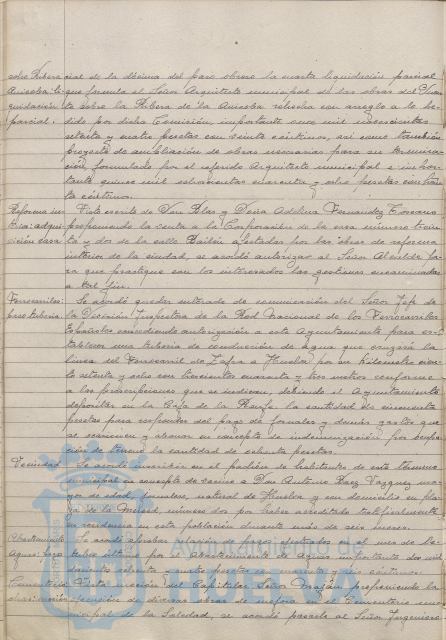 sobre Ribera
Anicoba: li-
quidación
parcial.
cial de la décima del paro obrero la cuarta liquidación parcial
que formula el Señor Arquitecto municipal de las obras del
sobre la Ribera de la Anicoba
dido por dicha Comisión importante once mil
setenta y cuatro pesetas con veinte céntimos, así como también
proyecto de ampliación de obras necesarias para su termina-
ción, formulado por el referido Arquitecto municipal e impor-
tante quince mil ochocientas cuarenta y ocho pesetas con
ta céntimos.
Reforma in-
terior: adqui-
sición casa
Visto escrito de Don Blas y Doña Adelina Fernandez Toscano
proponiendo la venta a la Corporación de la casa número trein-
ta y dos de la calle Bailén afectadas por las obras de reforma
interior de la ciudad, se acordó autorizar al Señor Alcalde pa-
ra que practique con los interesados las gestiones encaminadas
a tal fin.
Ferrocarriles:
cruce tuberia.
Se acordó quedar enterado de comunicación del Señor Jefe de
la División Inspectora de la Red Nacional de los Ferrocarriles
Españoles concediendo autorización a este Ayuntamiento para es-
tablecer una tuberia de conducción de agua que cruzará la
linea del Ferrocarril de Zafra a Huelva por su kilometro cien-
to setenta y ocho con trescientos cuarenta y tres metros conforme
a las prescripciones que se indican, debiendo el Ayuntamiento
depositar en la Caja de la Renfe, la cantidad de cincuenta
pesetas para responder del pago de jornales y demás gastos que
se devenguen y abonar en concepto de indemnización por ocupa-
ción de terreno la cantidad de ochenta pesetas.
Vecindad
Se acordó inscribir en el padrón de habitantes de este término
municipal en concepto de vecino a Don Antonio Baez Vazquez ma-
yor de edad, jornalero, natural de Huelva y con domicilio en pla-
za de la Merced, número dos por haber acreditado testificalmente
su residencia en esta población durante más de seis meses.
Abastecimiento
Aguas: pago
Se acordó aprobar relación de pagos efectuados en el mes de
tubre último por el Abastecimiento de Aguas importante dos mil
pesetas con cuarenta y seis céntimos.
Cementerio
Vista moción del Capitular Señor Garzón proponiendo la
ejecución de diversas obras de mejora en el Cementerio mu-
nicipal de la Soledad, se acordó pasarla al Señor Ingeniero
Ayuntamiento de
HUELVA